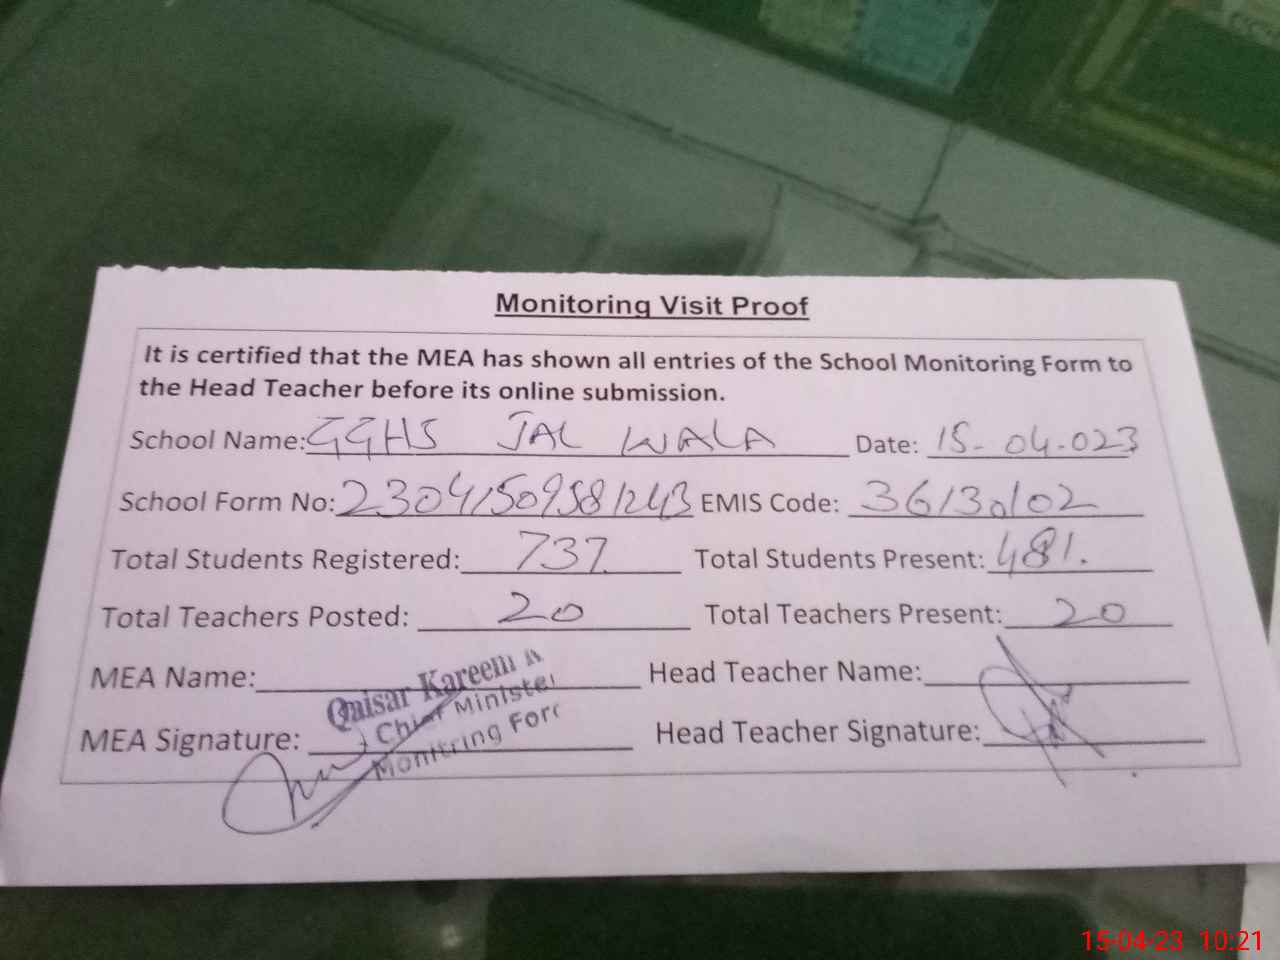 Monitoring Visit Proof
It is certified that the MEA has shown all entries of the School Monitoring Form to
the Head Teacher before its online submission.
School Name: GGHS JAL WALA Date: 15-04-023
School Form No: 23041509581243 EMIS Code: 36130102
Total Students Registered: 737. Total Students Present: 481.
Total Teachers Posted: 20 Total Teachers Present: 20
MEA Name: Head Teacher Name:
Qaisar Kareem
Chief Minister
Monitring Forc
MEA Signature: Head Teacher Signature:
15-04-23 10:21